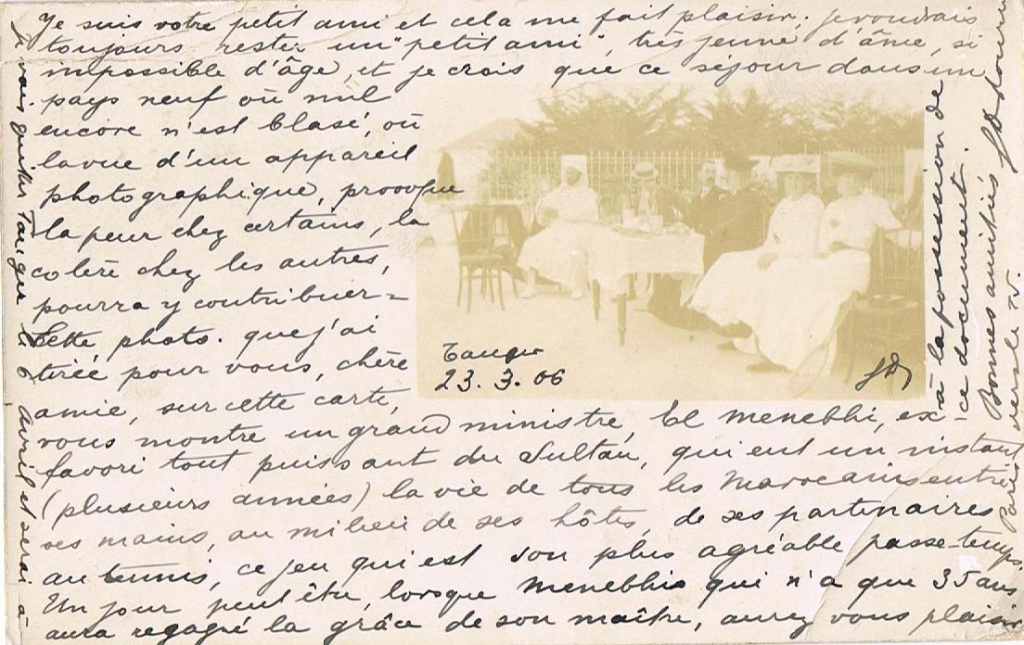 Je suis votre petit ami et cela me fait plaisir. je voudrais
toujours rester un "petit ami", très jeune d'âme, si
impossible d'âge, et je crois que ce séjour dans un
pays neuf où nul
encore n'est blasé, où
la vue d'un appareil
photographique, provoque
la peur chez certains, la
colère chez les autres,
pourra y contribuer =
Cette photo. que j'ai
tirée pour vous, chère
amie, sur cette carte,
vous montre un grand ministre, El Menebhi, ex-
favori tout puissant du Sultan, qui eut un instant
(plusieurs années) la vie de tous les Marocains entre
ses mains, au milieu de ses hôtes, de ses partenaires
au tennis, ce jeu qui est son plus agréable passe-temps
Un jour peut être, lorsque Menebhi qui n'a que 35 ans
aura regagné la grâce de son maître, aurez vous plaisir
à la possession de
ce document.
Bonnes amitiés
Je vais quitter Tanger le 6 Avril et serai à
Paris vers le 20.
Tanger
23.3.06
JD